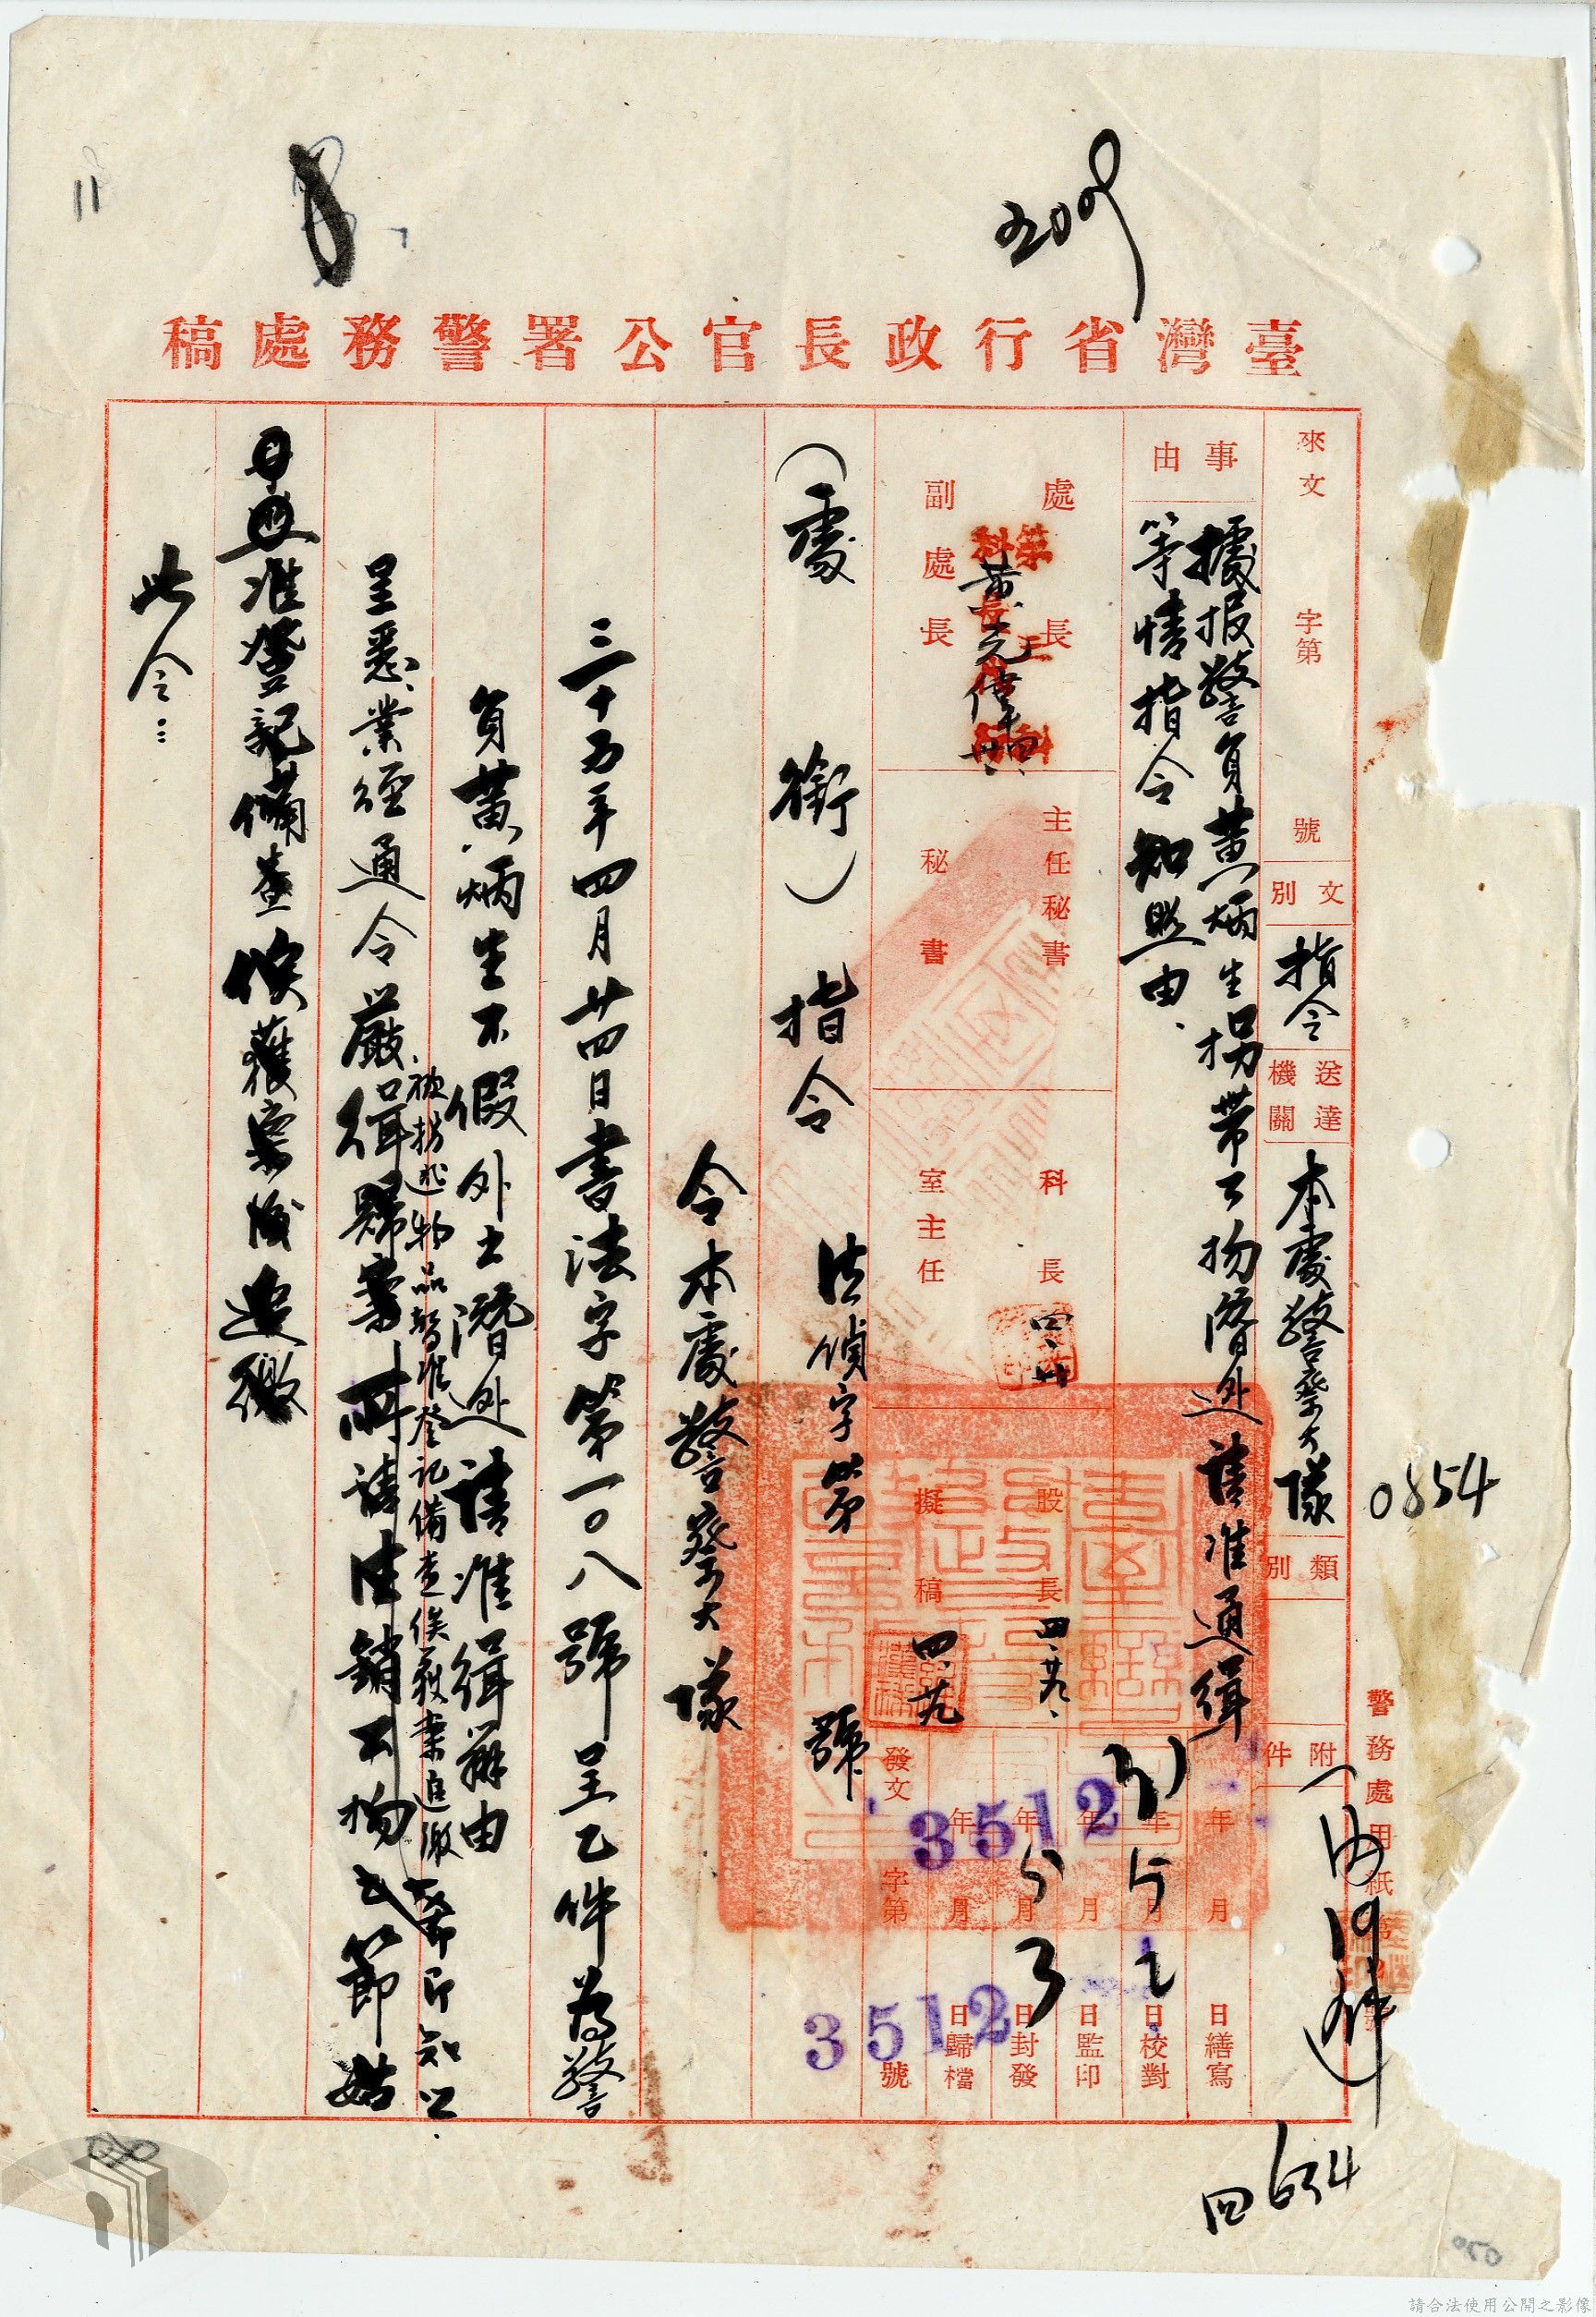 11
臺灣省行政長官公署警務處稿
來文 字第 號
文別 指令
送達機關 本處警察大隊
類別
附件
事由
據報警員黃炳生拐帶公物潛逃請准通緝
等情指令知照由、
處長
副處長
主任秘書
秘書
科長 四、卅
室主任
股長 四、廿九、
擬稿 四、廿九
年 月 日繕寫
年 月 日校對
年 月 日監印
年 月 日封發
年 月 日歸檔
發文 字第 號
3512
3512
警務處用紙
0854
(處 銜)指令 法偵字第 號
令本處警察大隊
三十五年四月廿四日書法字第一〇八號呈乙件為警
員黃炳生不假外出潛逃請准緝辦由
呈悉業經通令嚴緝歸案
被拐逃物品暫准登記備查俟獲案追繳 仰即知照
所請准銷公物之節姑
准登記備查俟獲案後追繳
此令
四 634
050
請合法使用公開之影像